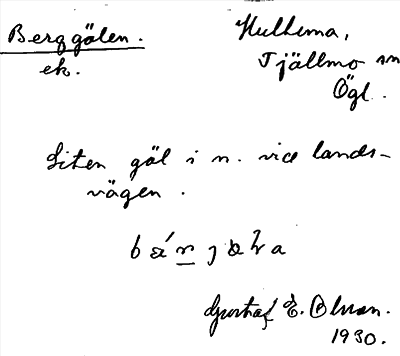 Berggölen.
ek.
Hultema,
Tjällmo sn
Ögl.
Liten göl i n. vid lands-
vägen.
Gustaf E. Olsson.
1930.